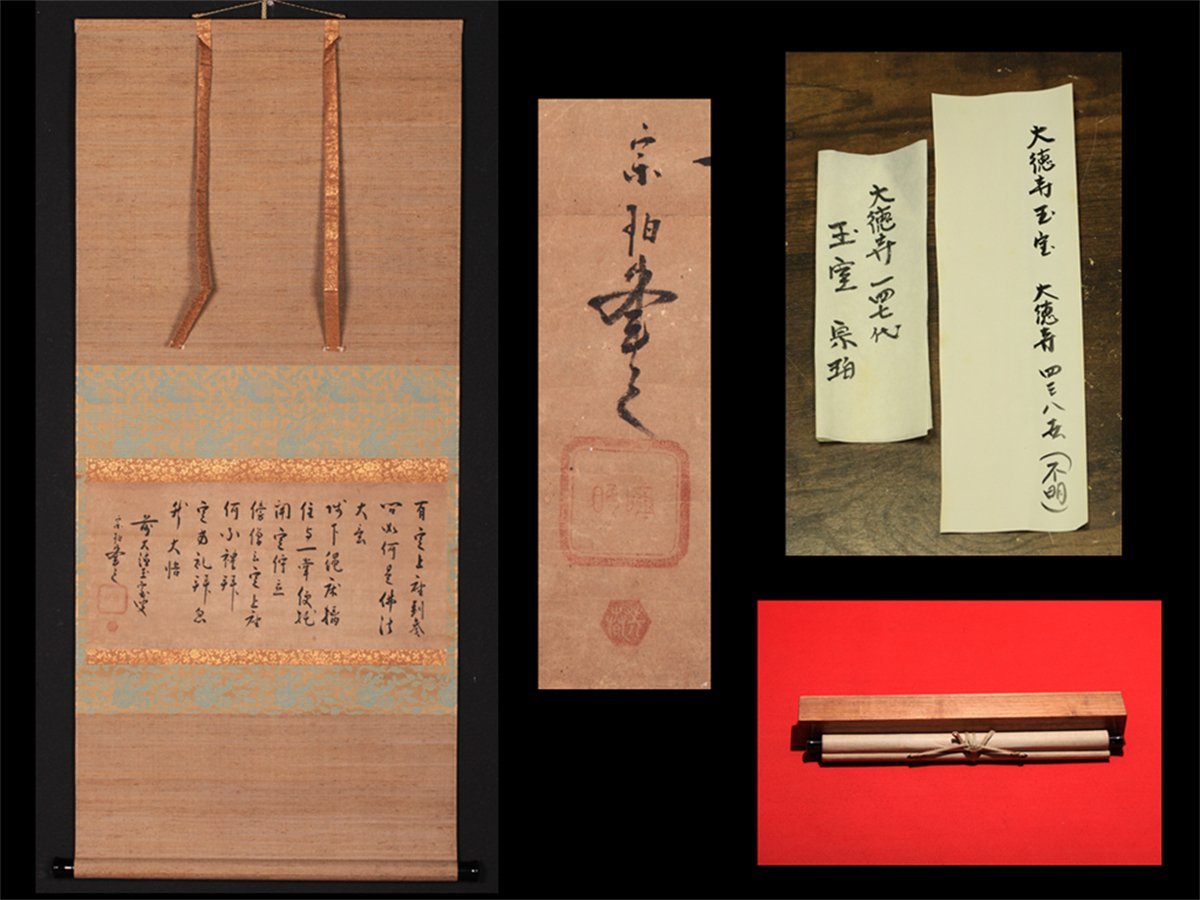 有定上座到参
問如何是佛法
大意
師下繩床擒
住与一掌便托
開定佇立
傍僧云定上座
何不禮拝
定方礼拝忽
然大悟
前大徳玉室叟
宗珀書之
宗珀書之
大徳寺玉室 大徳寺四三八世(不明)
大徳寺一四七代
玉室 宗珀